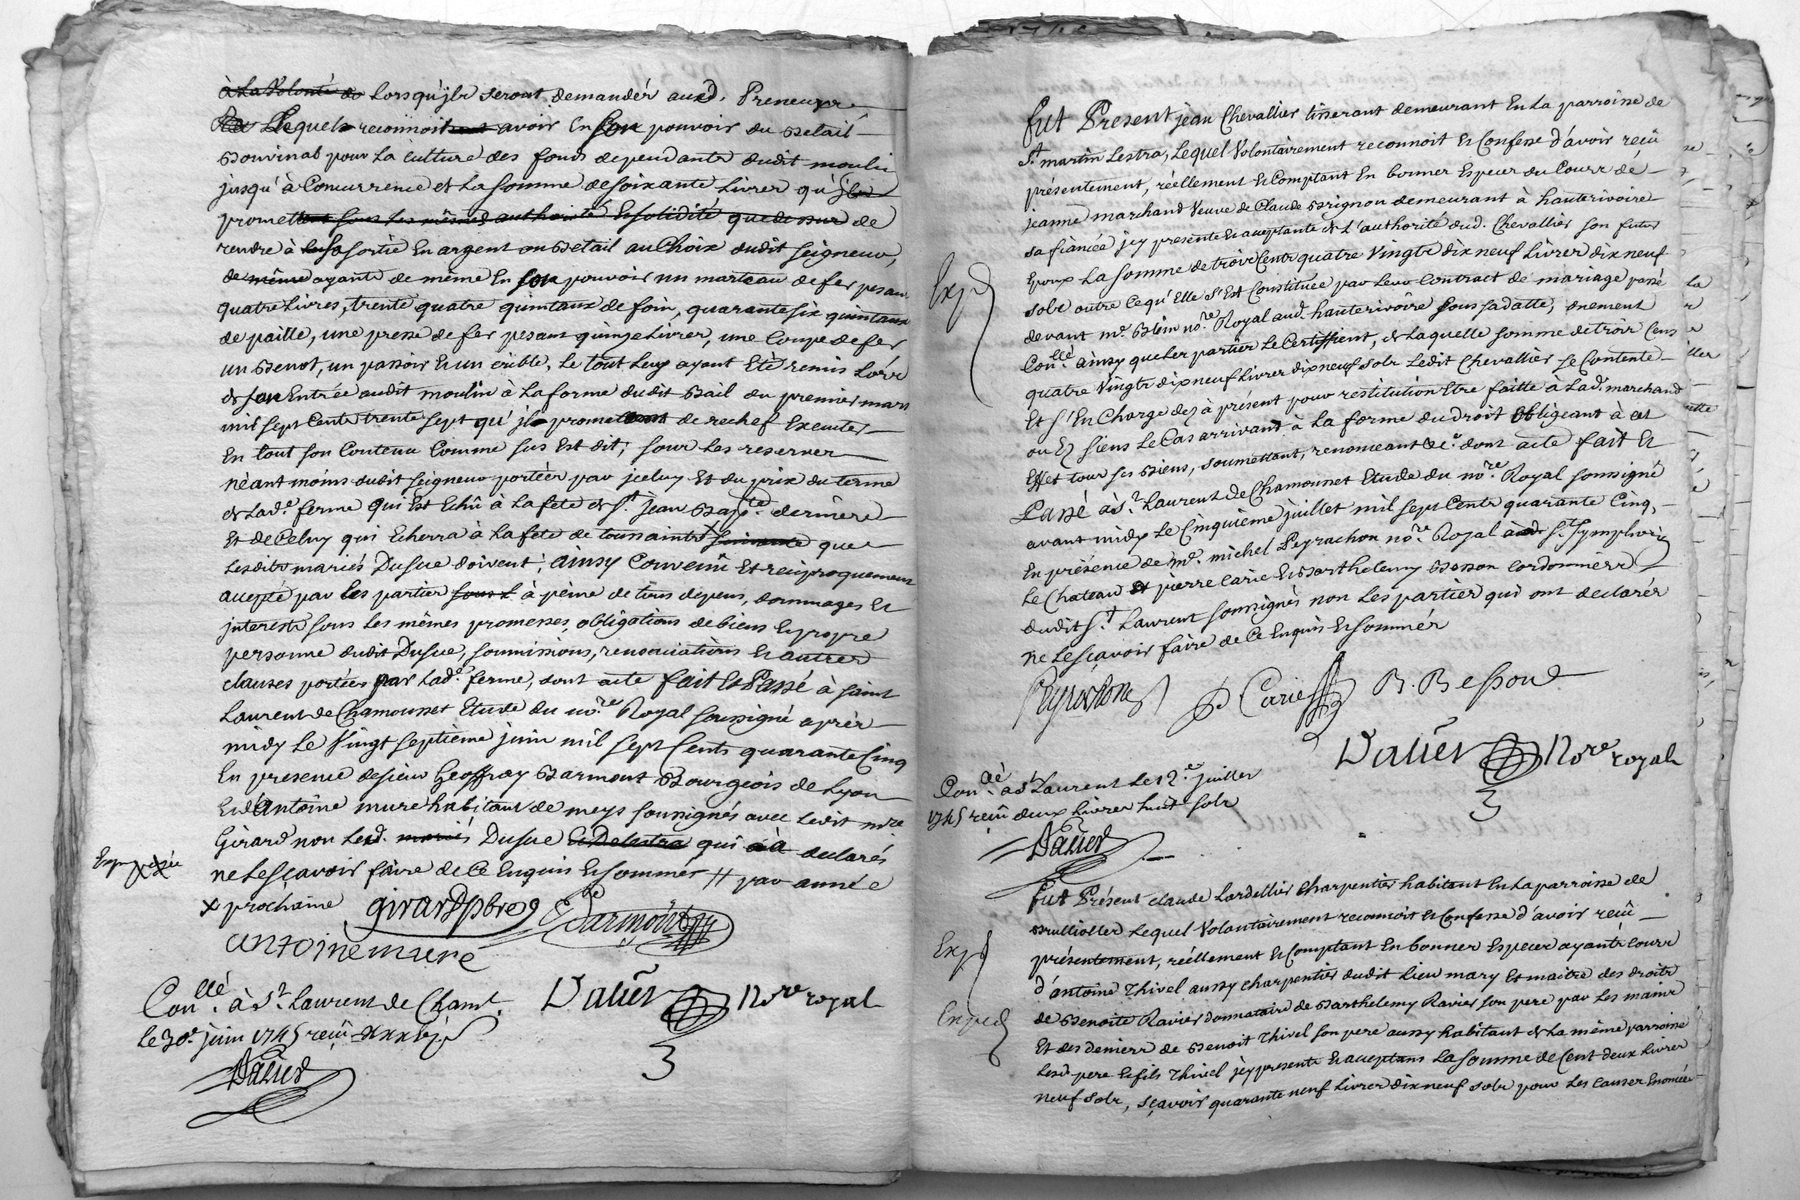 à La Volonté do Lorsqu'jls seront demandés auxd. Preneurs
Lequel reconnoit avoir En son pouvoir du Betail
Bovinal pour La Culture des fonds dependants dudit moulin
jusqu'à Concurrence de La somme de soixante Livres qu'jls
promettent sous Les mêmes authorité et solidité que dessus de
rendre à sa sortie En argent ou Betail au Choix dudit seigneur,
de même ayants de même En son pouvoir un marteau de fer pesant
quatre Livres, trente quatre quintaux de foin, quarante six quintaux
de paille, une presse de fer pesant quinze Livres, une Coupe de fer
un Benot, un passoir Et un crible, Le tout Luy ayant Eté remis Lors
de son Entrée audit moulin à La forme dudit Bail du premier mars
mil sept Cents trente sept qu'jl promet de rechef Executer
En tout son Contenu Comme sus Est dit; sous Les reserves
néant moins dudit seigneur portées par jceluy Et du prix du terme
de Lad.e ferme qui Est Echû à La fete de St. jean Bapte. derniere
Et de Celuy qui Echerra à La fete de toussaints suivante que
Lesdits mariés Dusue doivent; ainsy Convenû Et reciproquement
accepté par Les parties sous L à peine de tous depens, dommages Et
interests sous Les mêmes promesses, obligations de biens Et propre
personne dudit Dusue, soumissions, renonciations Et autres
clauses portées par Lad.e ferme, dont acte fait Et Passé à saint
Laurent de Chamousset Etude du no.re Royal soussigné après
midy Le Vingt septième juin mil sept Cents quarante Cinq
En presence de sieur Geoffray Barmont Bourgeois de Lyon
Et d'antoine mure habitant de meys soussignés avec Ledit mre
Girard non Led. mariés Dusue Et Delestra qui a declaré
ne Le sçavoir faire de Ce Enquis Et sommés // par année
x prochaine girard pbre Barmont
antoine mure
Con.llé à St. Laurent de Cham.t Valier No.re royal
Le 30e. juin 1745 reçû
Valier
fut Present jean Chevallier tisserant demeurant En La parroisse de
St. martin Lestra, Lequel Volontairement reconnoit Et Confesse d'avoir reçû
présentement, réellement Et Comptant En bonnes Especes du Cours de
jeanne marchand Veuve de Claude Brignon demeurant à hauterivoire
sa fiancée jcy presente Et acceptante de L'authorité dud. Chevallier son futur
Exp.d
Epoux La somme de trois Cents quatre Vingts dix neuf Livres dix neuf
sols outre Ce qu'Elle s'Est Constituée par Leur Contract de mariage passé
devant me. Blein no.re Royal aud. hauterivoire sous sa datte, dûement
Con.llé ainsy que Les parties Le Certiffient, de Laquelle somme de trois Cens
quatre Vingts dix neuf Livres dix neuf sols Ledit Chevallier se Contente
Et s'En Charge dez à présent pour restitution Etre faitte à Lad. marchand
ou Ez siens Le Cas arrivant à La forme du droit obligeant à cet
Effet tous ses Biens, soumettant, renonceant &c. dont acte fait Et
Passé à St. Laurent de Chamousset Etude du no.re Royal soussigné
avant midy Le Cinquième juillet mil sept Cents quarante Cinq,
En présence de me. michel Peyrachon no.re Royal St. Symphorien
Le Chateau Et pierre Carie Et Barthelemy Besson Cordonniers
dudit St. Laurent soussignés non Les parties qui ont declarés
ne Le sçavoir faire de Ce Enquis Et sommés
Peyrachon P Carie B. Besson
Valier No.re royal
Con.llé à St. Laurent Le 12e. juillet
1745 reçû deux Livres huit sols
Valier
fut Présent claude Lardellier Charpentier habitant En La parroisse de
Brullioles Lequel Volontairement reconnoit Et Confesse d'avoir reçû
Exp.d
présentement, réellement Et Comptant En bonnes Especes ayants cours
d'antoine Thivel aussy charpentier dudit Lieu mary Et maitre des droits
de Benoite Ravier donnataire de Barthelemy Ravier son pere par Les mains
Et des deniers de Benoit Thivel son pere aussy habitant de La même parroisse
Lesd. pere Et fils Thivel jcy presents Et acceptans La somme de Cent deux Livres
neuf sols, sçavoir quarante neuf Livres dix neuf sols pour Les causes Enoncées